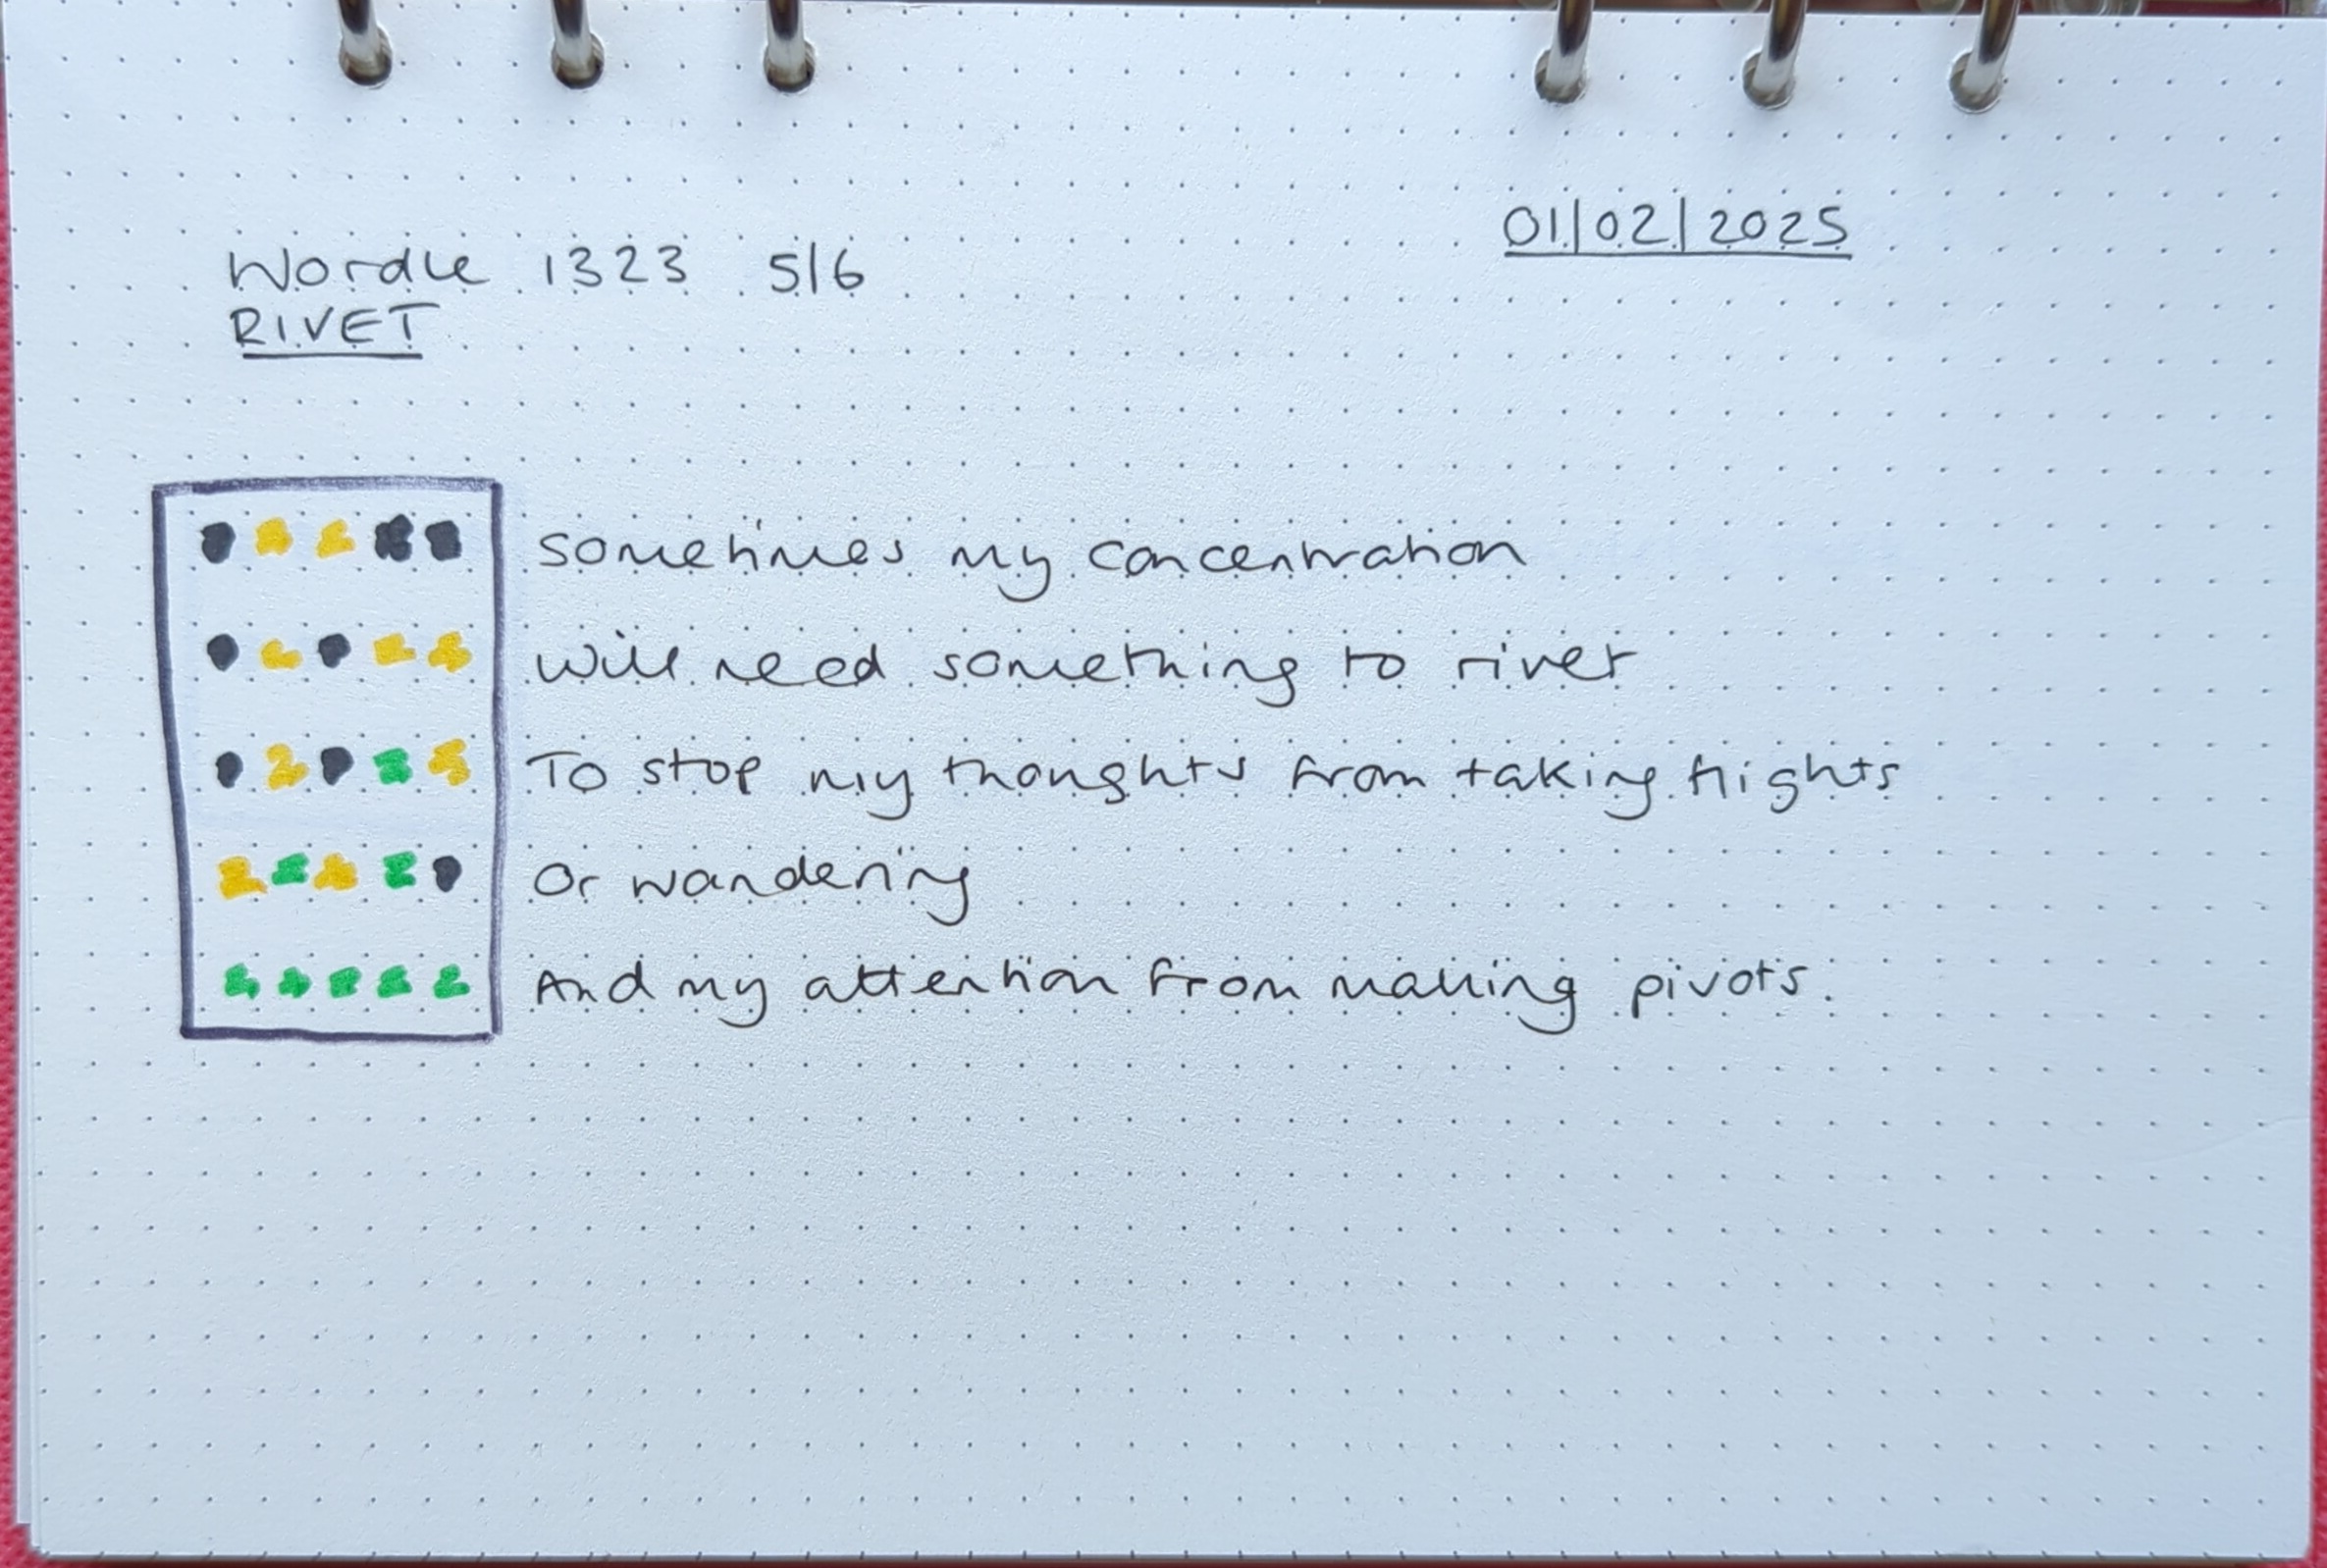 01/02/2025
Wordle 1323 5/6
RIVET
Sometimes my concentration
Will need something to rivet
To stop my thoughts from taking flights
Or wandering
And my attention from making pivots.